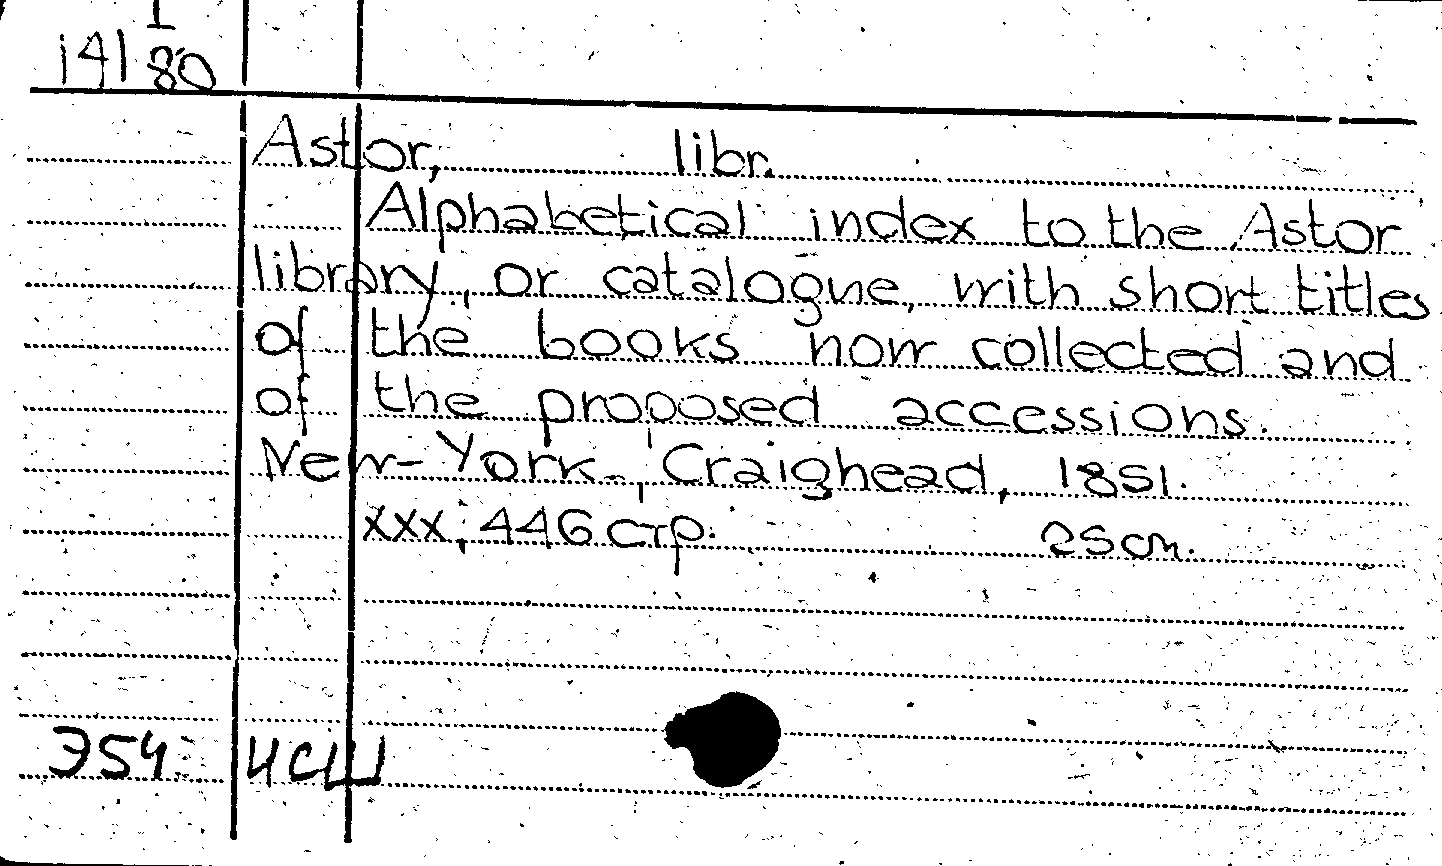 I
141 80
Astor, libr.
Alphabetical index to the Astor
library, or catalogue, with short titles
of the books now collected and
of the proposed accessions.
New-York, Craighead, 1851.
xxx, 446 стр. 25 cm.
Э54 ИСШ